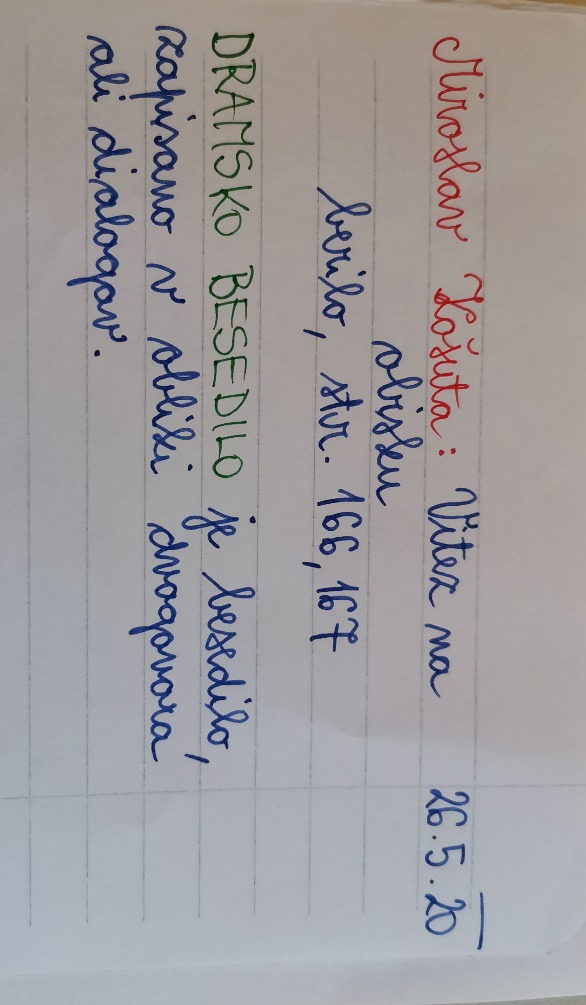 Miroslav Košuta: Vitez na 26.5.20
obisku
berilo, str. 166, 167
DRAMSKO BESEDILO je besedilo,
zapisano v obliki dvogovora
ali dialogov.